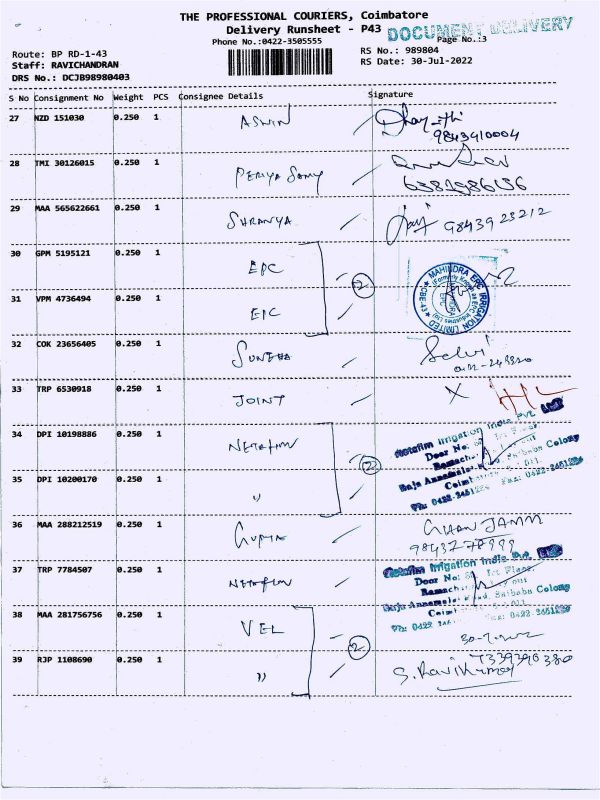 THE PROFESSIONAL COURIERS, Coimbatore
Delivery Runsheet - P43
DOCUMENT DELIVERY
Phone No.:0422-3505555
Page No.:3
Route: BP RD-1-43
RS No.: 989804
Staff: RAVICHANDRAN
RS Date: 30-Jul-2022
DRS No.: DCJB98980403
S No Consignment No Weight PCS Consignee Details Signature
27 NZD 151030 0.250 1 ASWIN
9843410004
28 TMI 30126015 0.250 1 PERIYA SAMY
29 MAA 565622661 0.250 1 SHRANYA
98439 23212
30 GPM 5195121 0.250 1 EPC
MAHINDRA EPC IRRIGATION LIMITED
2
31 VPM 4736494 0.250 1 EPC
32 COK 23656405 0.250 1 SUNEHA Selvi
33 TRP 6530918 0.250 1 JOINT X
34 DPI 10198886 0.250 1 NETAFIM
Netafim Irrigation India Pvt. Ltd
Door No:
Ramach
Saibaba Colony
2
35 DPI 10200170 0.250 1 "
Ph: 0422-2451224 Fax: 0422-2451224
36 MAA 288212519 0.250 1 GUPTA
37 TRP 7784507 0.250 1 NETAFIM
Netafim Irrigation India Pvt. Ltd
Door No:
Ramach
Saibaba Colony
38 MAA 281756756 0.250 1 VEL
30-7-2022
2
39 RJP 1108690 0.250 1 "
7339390380
S. Ravikumar